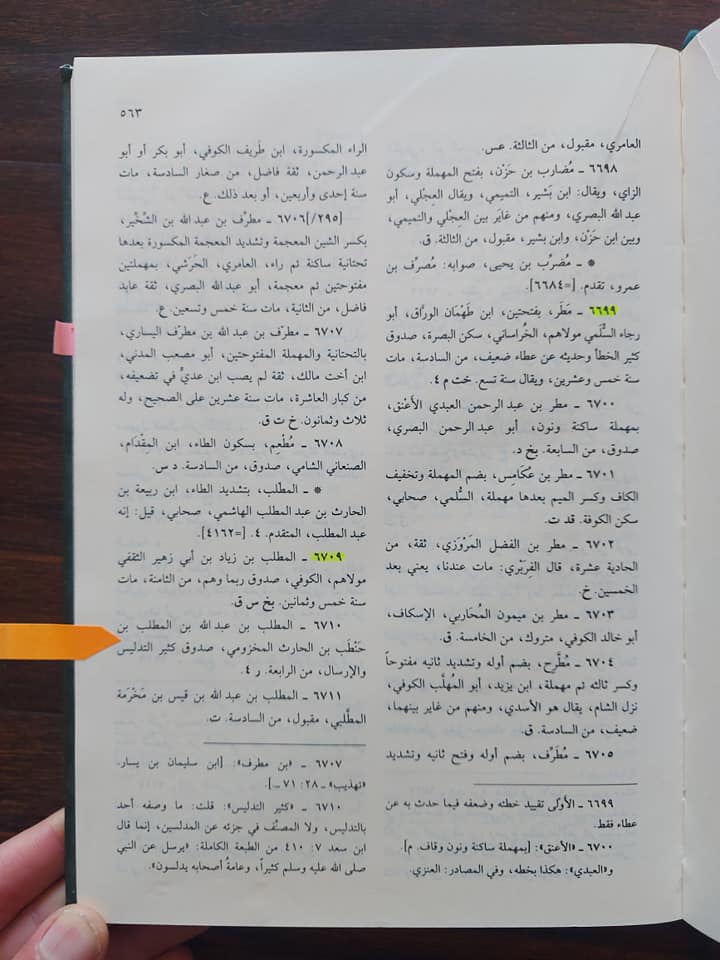 ٥٦٣
العامري، مقبول، من الثالثة. عس.
٦٦٩٨ ـ مُضارب بن حَزْن، بفتح المهملة وسكون
الزاي، ويقال: ابن بَشير، التميمي، ويقال العجْلي، أبو
عبد الله البصري، ومنهم من غايَر بين العِجْلي والتميمي،
وبين ابن حَزْن، وابن بشير، مقبول، من الثالثة. ق.
* ـ مُضرِّب بن يحيى، صوابه: مُصرِّف بن
عمرو، تقدم. [=٦٦٨٤].
٦٦٩٩ ـ مَطَر، بفتحتين، ابن طَهْمَان الورَّاق، أبو
رجاء السُّلَمي مولاهم، الخُراساني، سكن البصرة، صدوق
كثير الخطأ وحديثه عن عطاء ضعيف، من السادسة، مات
سنة خمس وعشرين، ويقال سنة تسع. خت م ٤.
٦٧٠٠ ـ مطر بن عبد الرحمن العبدي الأعْنق،
بمهملة ساكنة ونون، أبو عبد الرحمن البصري،
صدوق، من السابعة. بخ د.
٦٧٠١ ـ مطر بن عُكَامِس، بضم المهملة وتخفيف
الكاف وكسر الميم بعدها مهملة، السُّلمي، صحابي،
سكن الكوفة. قد ت.
٦٧٠٢ ـ مطر بن الفضل المَرْوَزي، ثقة، من
الحادية عشرة، قال الفِرَبْري: مات عندنا، يعني بعد
الخمسين. خ.
٦٧٠٣ ـ مطر بن ميمون المُحَاربي، الإسكاف،
أبو خالد الكوفي، متروك، من الخامسة. ق.
٦٧٠٤ ـ مُطَّرِح، بضم أوله وتشديد ثانيه مفتوحاً
وكسر ثالثه ثم مهملة، ابن يزيد، أبو المُهلَّب الكوفي،
نزل الشام، يقال هو الأسدي، ومنهم من غاير بينهما،
ضعيف، من السادسة. ق.
٦٧٠٥ ـ مُطَرِّف، بضم أوله وفتح ثانيه وتشديد
٦٦٩٩ ـ الأَوْلى تقييد خطئه وضعفه فيما حدث به عن
عطاء فقط.
٦٧٠٠ ـ «الأعنق»: [بمهملة ساكنة ونون وقاف. م].
و«العبدي»: هكذا بخطه، وفي المصادر: العنزي.
الراء المكسورة، ابن طَريف الكوفي، أبو بكر أو أبو
عبد الرحمن، ثقة فاضل، من صغار السادسة، مات
سنة إحدى وأربعين، أو بعد ذلك. ع.
[٢٩٥/]٦٧٠٦ ـ مطرِّف بن عبد الله بن الشِّخِّير،
بكسر الشين المعجمة وتشديد المعجمة المكسورة بعدها
تحتانية ساكنة ثم راء، العامري، الحَرَشي، بمهملتين
مفتوحتين ثم معجمة، أبو عبد الله البصري، ثقة عابد
فاضل، من الثانية، مات سنة خمس وتسعين. ع.
٦٧٠٧ ـ مطرِّف بن عبد الله بن مطرِّف اليساري،
بالتحتانية والمهملة المفتوحتين، أبو مصعب المدني،
ابن أخت مالك، ثقة لم يصب ابن عديٍّ في تضعيفه،
من كبار العاشرة، مات سنة عشرين على الصحيح، وله
ثلاث وثمانون. خ ت ق.
٦٧٠٨ ـ مُطْعِم، بسكون الطاء، ابن المِقْدَام،
الصنعاني الشامي، صدوق، من السادسة. د س.
* ـ المطّلب، بتشديد الطاء، ابن ربيعة بن
الحارث بن عبد المطلب الهاشمي، صحابي، قيل: إنه
عبد المطلب، المتقدم. ٤. [=٤١٦٢].
٦٧٠٩ ـ المطلب بن زياد بن أبي زهير الثقفي
مولاهم، الكوفي، صدوق ربما وهم، من الثامنة، مات
سنة خمس وثمانين. بخ س ق.
٦٧١٠ ـ المطلب بن عبد الله بن المطلب بن
حَنْطَب بن الحارث المخزومي، صدوق كثير التدليس
والإرسال، من الرابعة. ر ٤.
٦٧١١ ـ المطلب بن عبد الله بن قيس بن مَخْرَمة
المطَّلبي، مقبول، من السادسة. ت.
٦٧٠٧ ـ «بن مطرف»: [ابن سليمان بن يسار.
«تهذيب» ـ ٢٨: ٧١ ـ].
٦٧١٠ ـ «كثير التدليس»: قلت: ما وصفه أحد
بالتدليس، ولا المصنِّف في جزئه عن المدلسين، إنما قال
ابن سعد ٧: ٤١٠ من الطبعة الكاملة: «يرسل عن النبي
صلى الله عليه وسلم كثيراً، وعامةُ أصحابه يدلسون».